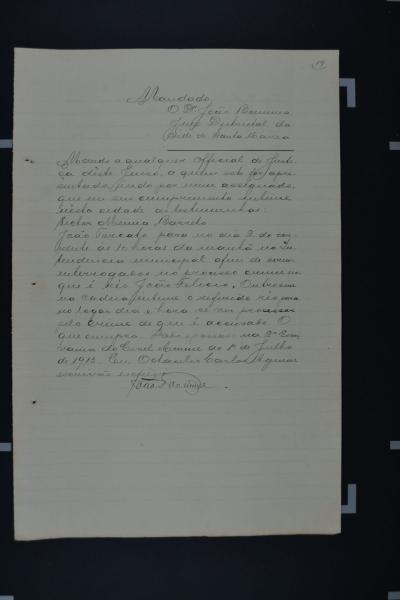 Mandado
O Dr. João Bonuma,
Juiz Districtal da
Séde de Santa Maria
Mando a qualquer official de Justi-
ça deste Juizo, a quem este for apre-
sentado, indo por mim assignado,
que em seu cumprimento intime
nesta cidade as testemunhas:
Menna Barreto
João Torcato para no dia 2 do cor-
rente ás 10 horas da manhã na In-
tendencia municipal afim de serem
interrogados no processo crime em
que é réo João Felicio. Outrosim
na cadeia intime o referido réo para
no logar dia e hora se ver processar
pelo crime de que é accusado. O
que cumpra.
de Julho
de 1913. Eu, Octavio Carlos Aguiar
escrivão escrevi
João Bonuma